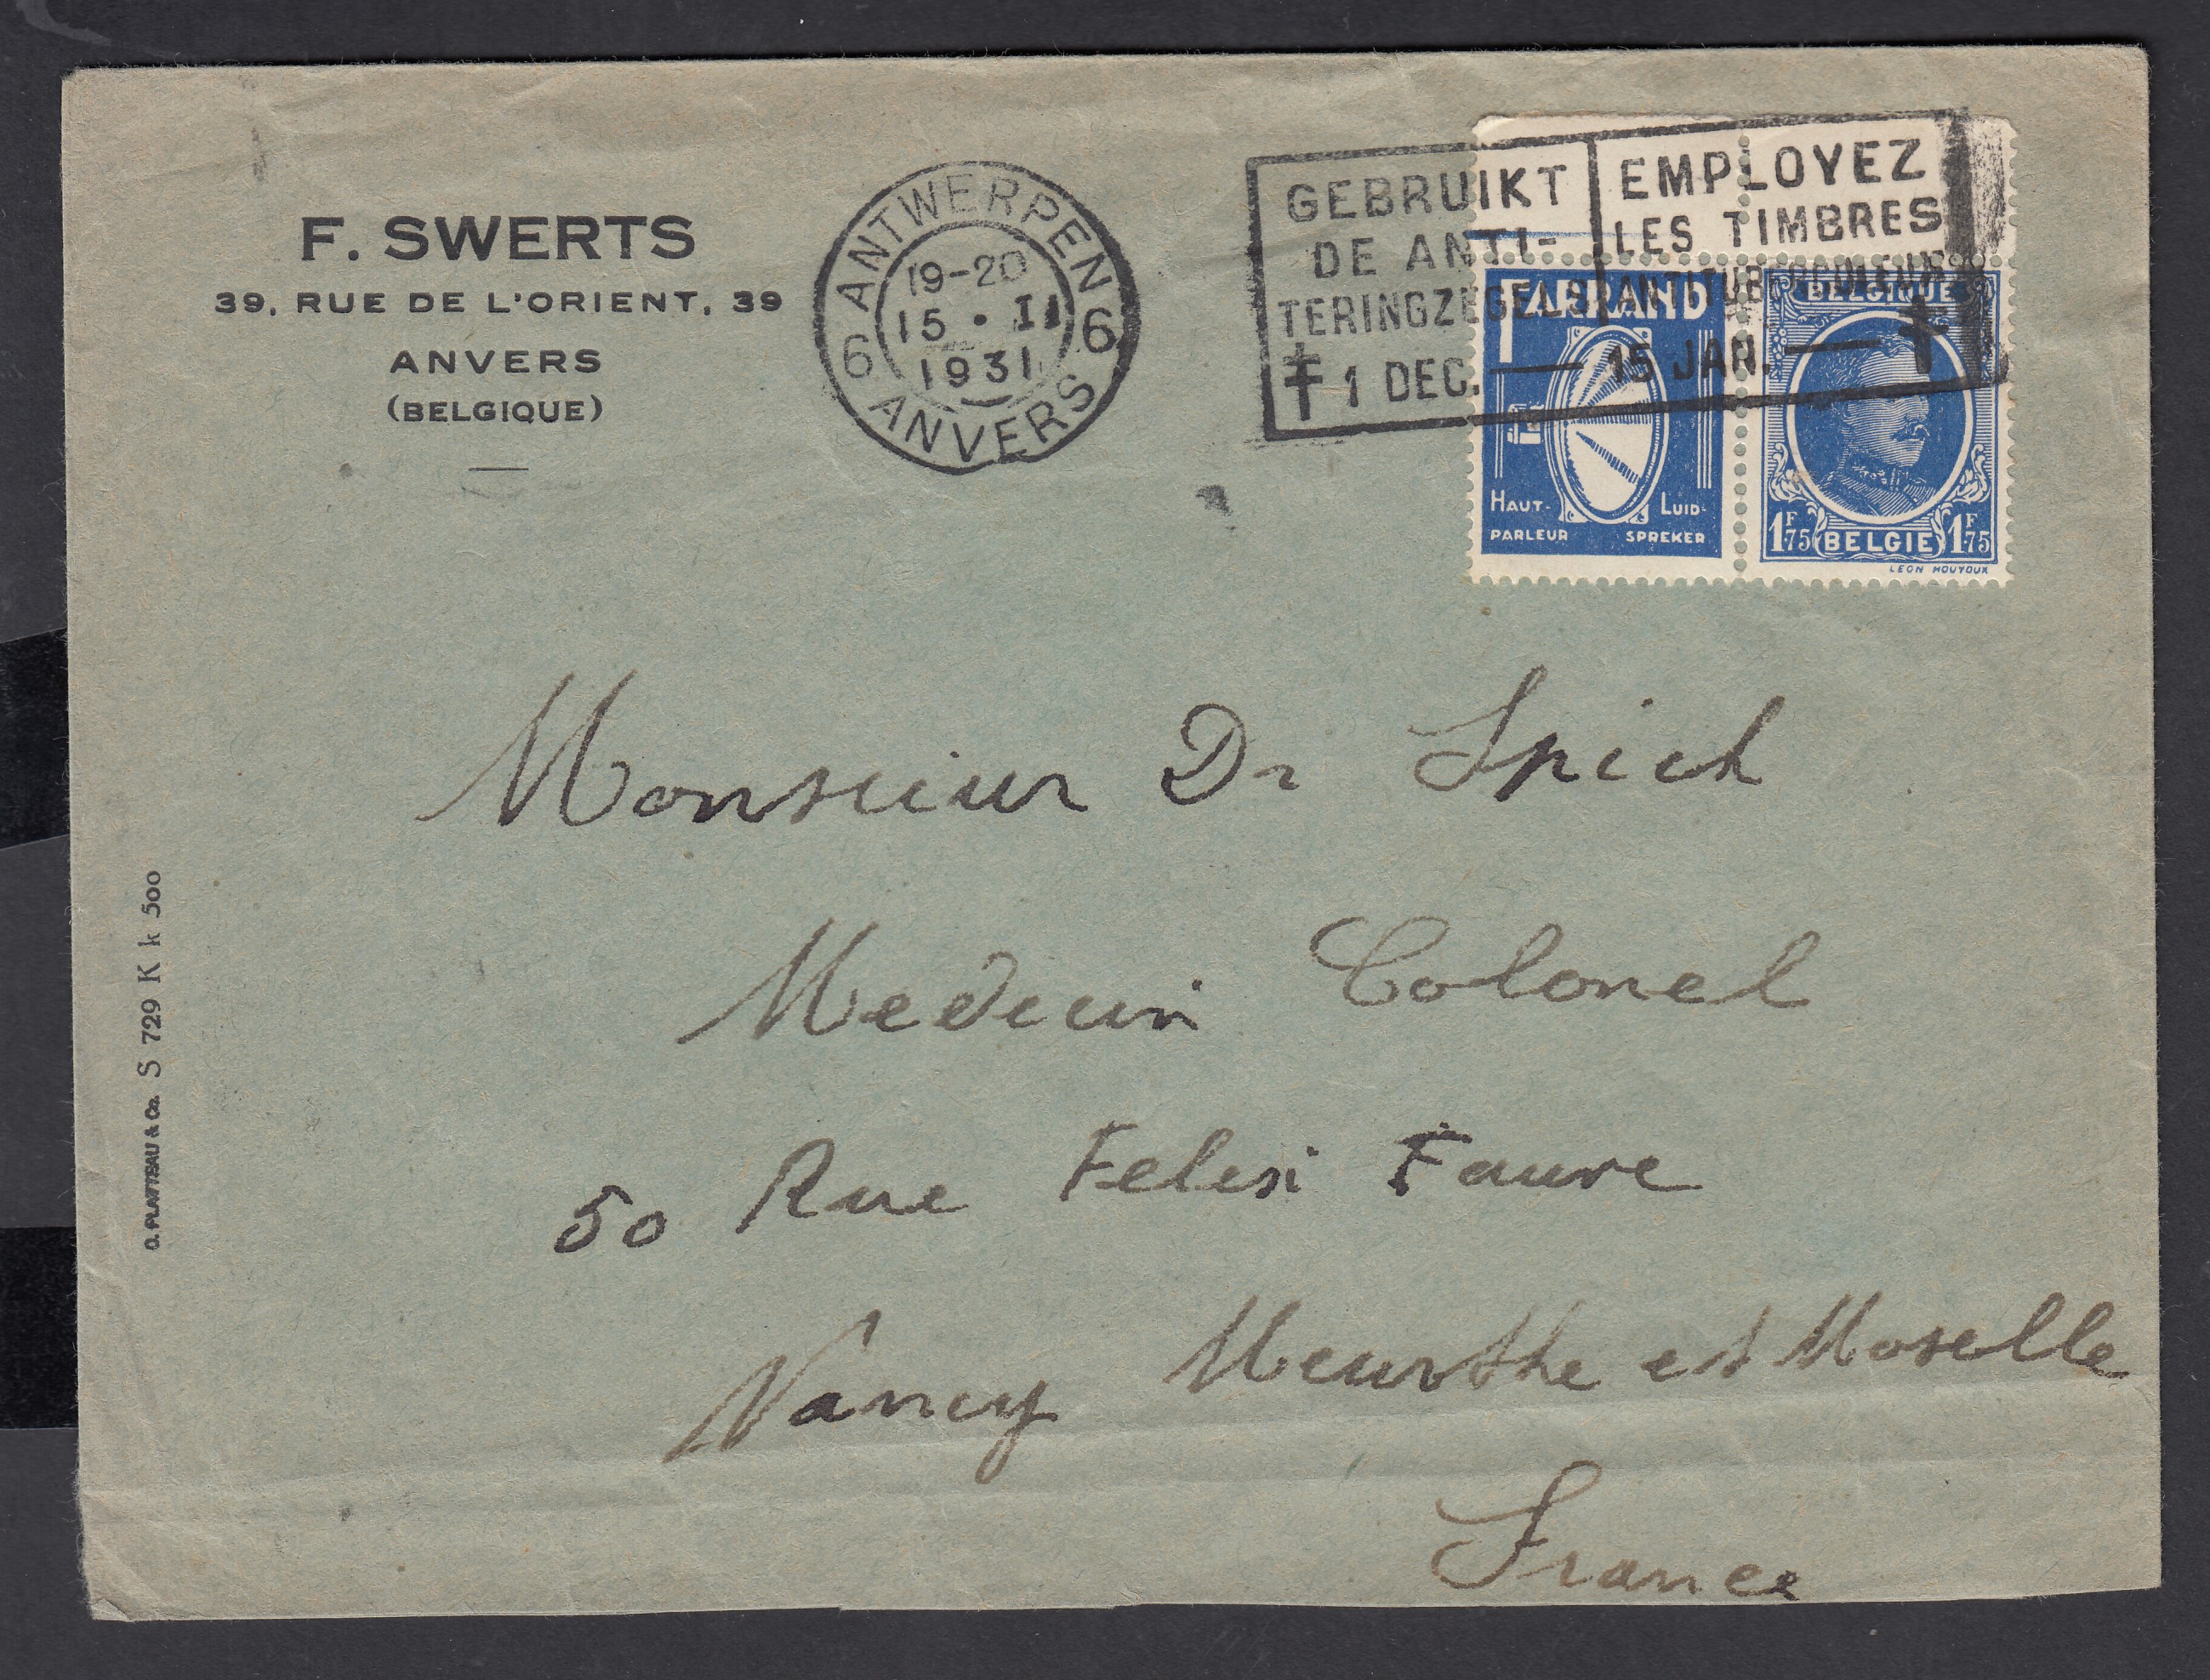 F. SWERTS
39, RUE DE L'ORIENT, 39
ANVERS
(BELGIQUE)
ANTWERPEN
6 6
19-20
15 • II
1931
ANVERS
GEBRUIKT
DE ANTI-
TERINGZEGELS
1 DEC. — 15 JAN. —
EMPLOYEZ
LES TIMBRES
ANTITUBERCULEUX
BELGIQUE
HAUT-
PARLEUR
LUID-
SPREKER
1F75 BELGIË 1F75
LEON HOUYOUX
Monsieur Dr Spich
Medecin Colonel
50 Rue Felix Faure
Nancy Meurthe et Moselle
France
S 729 K k 500